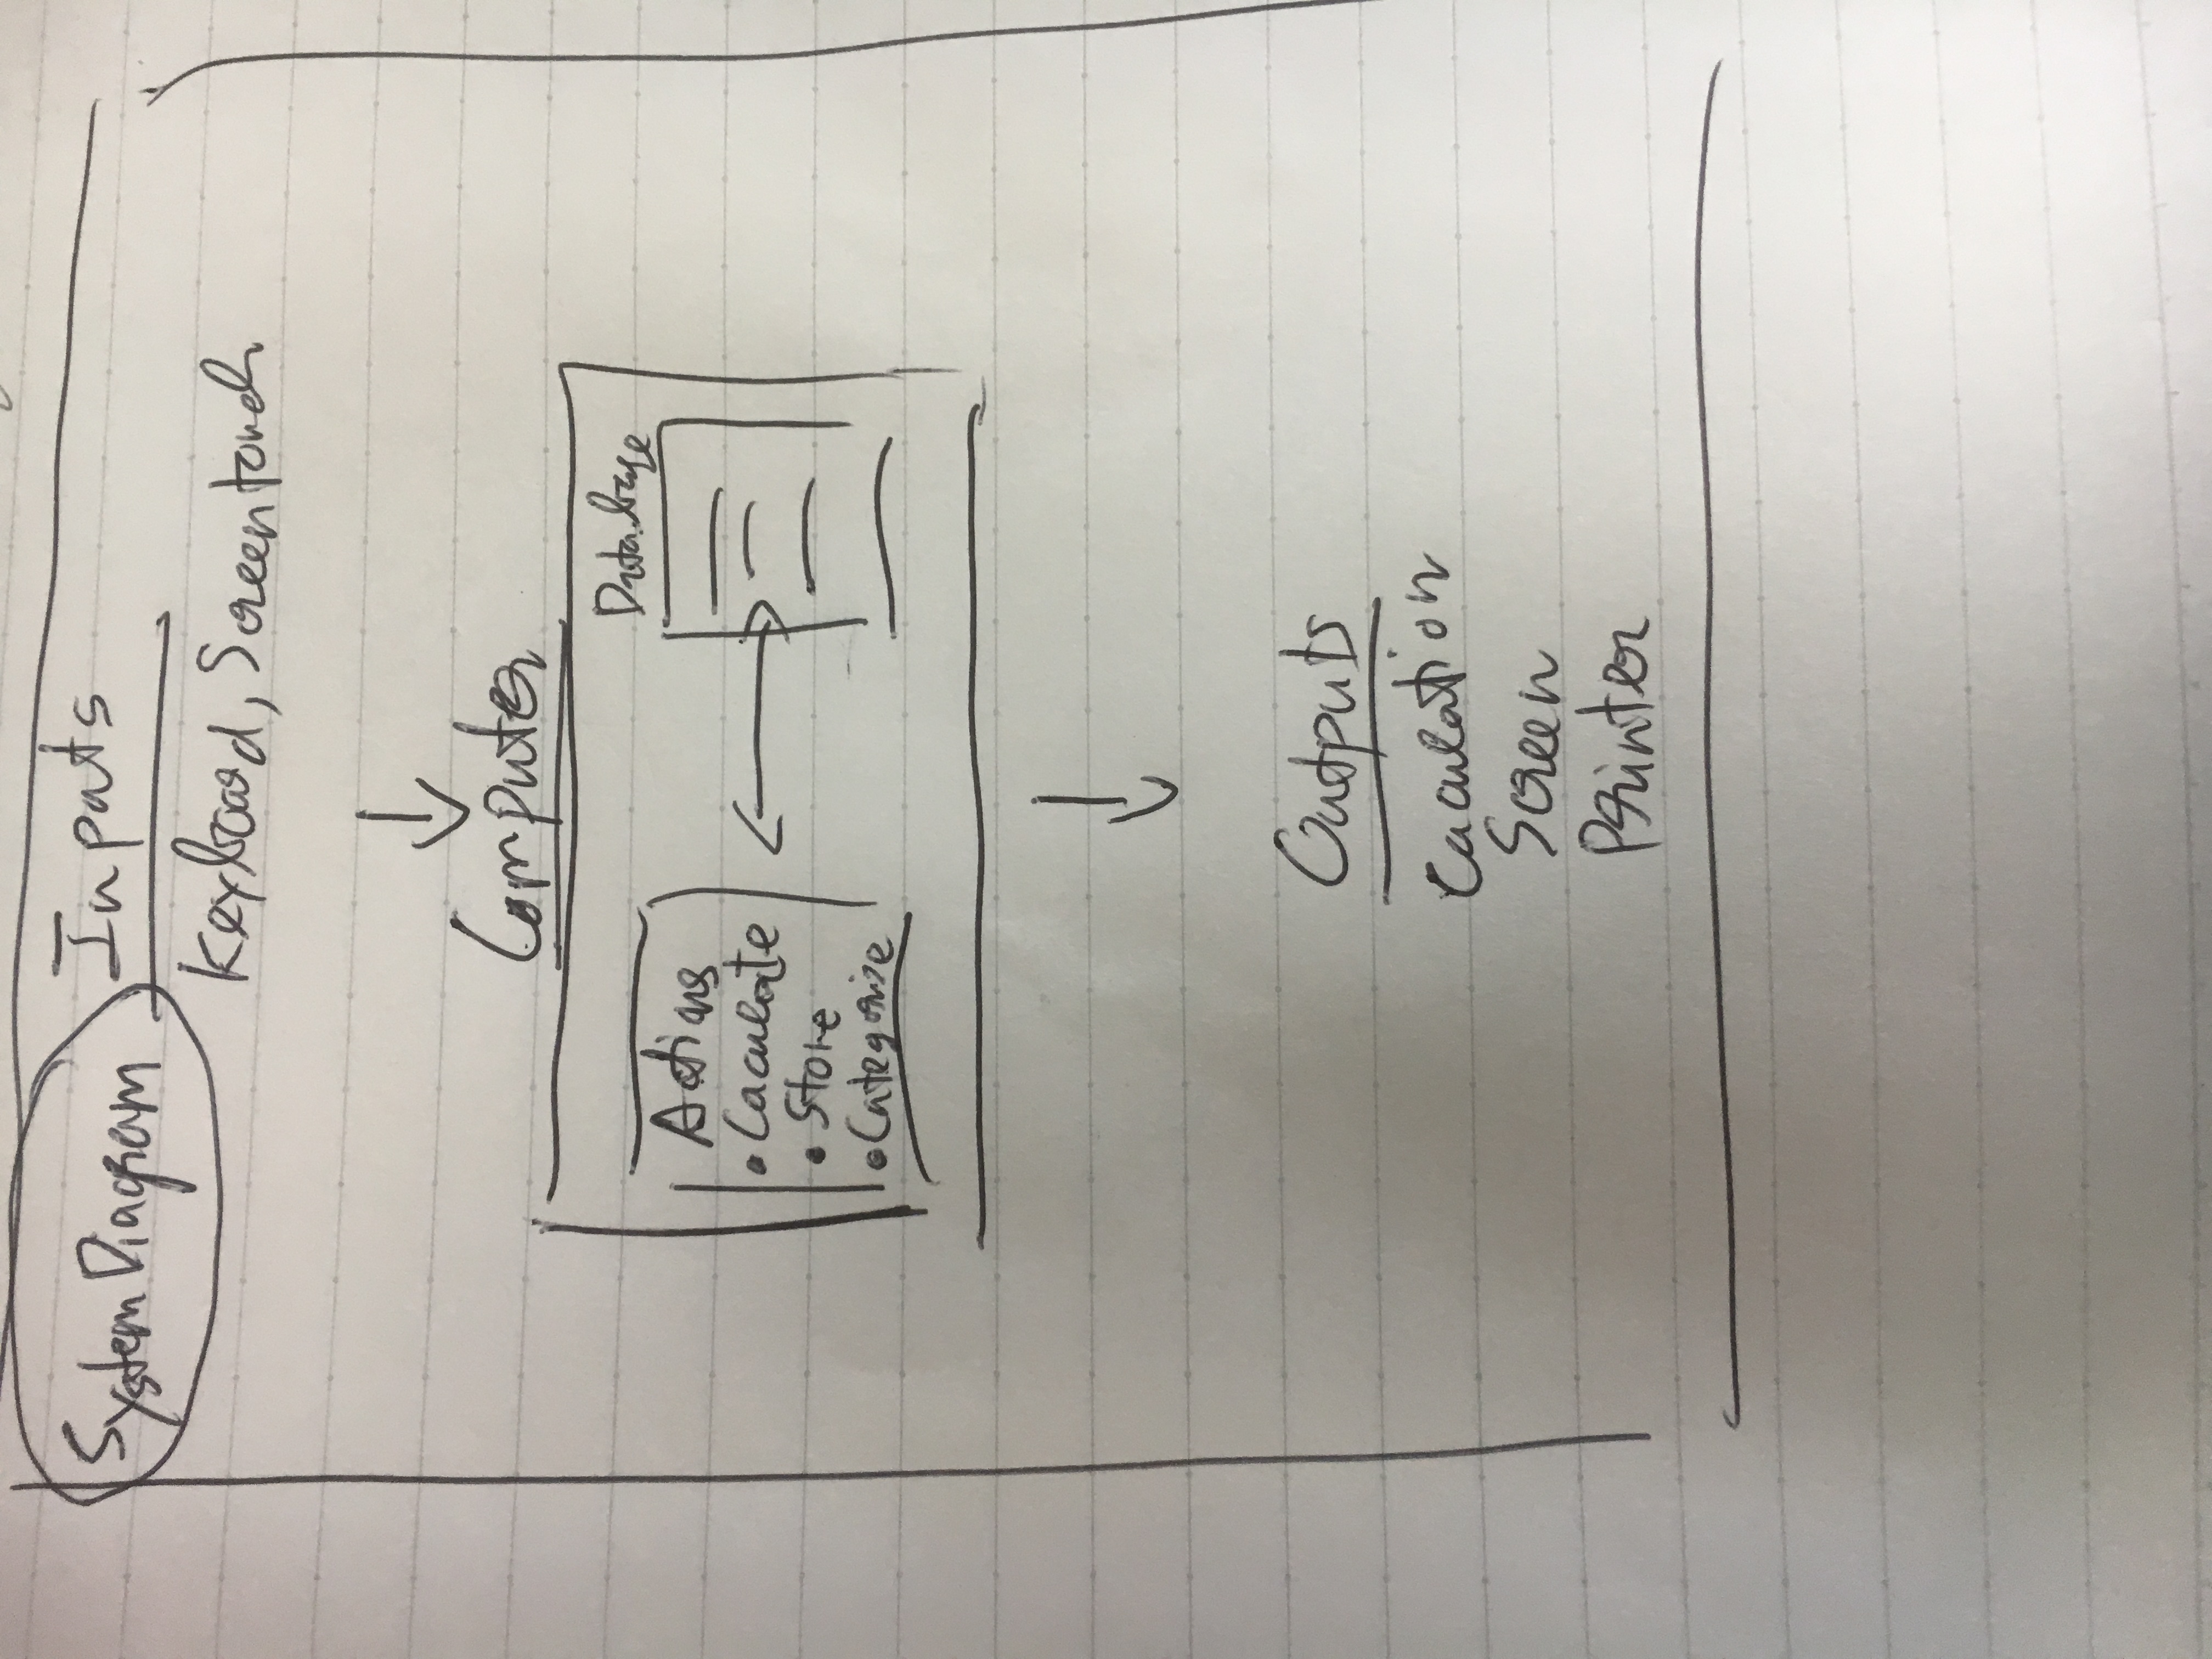 System Diagram
Inputs
Keyboard, Screentouch
Computer
Database
Actions
• Caculate
• Store
• Categorize
Outputs
Caculation
Screen
Printer